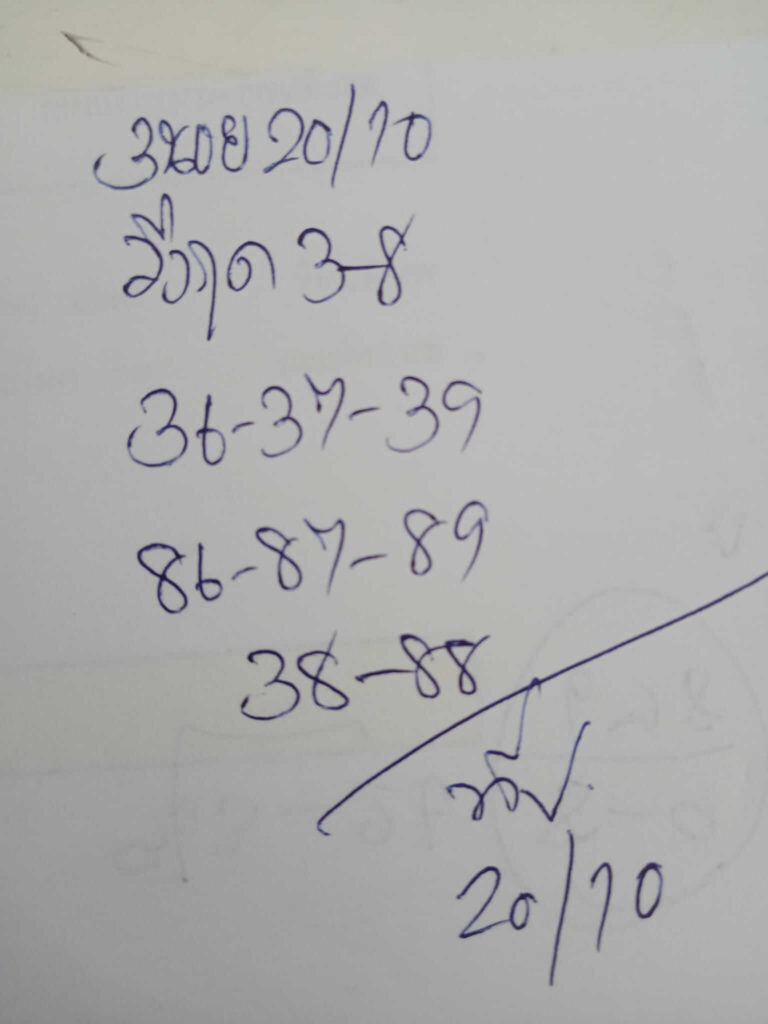 ฮานอย 20/10
วิ่งรูด 3-8
36-37-39
86-87-89
38-88
20/10